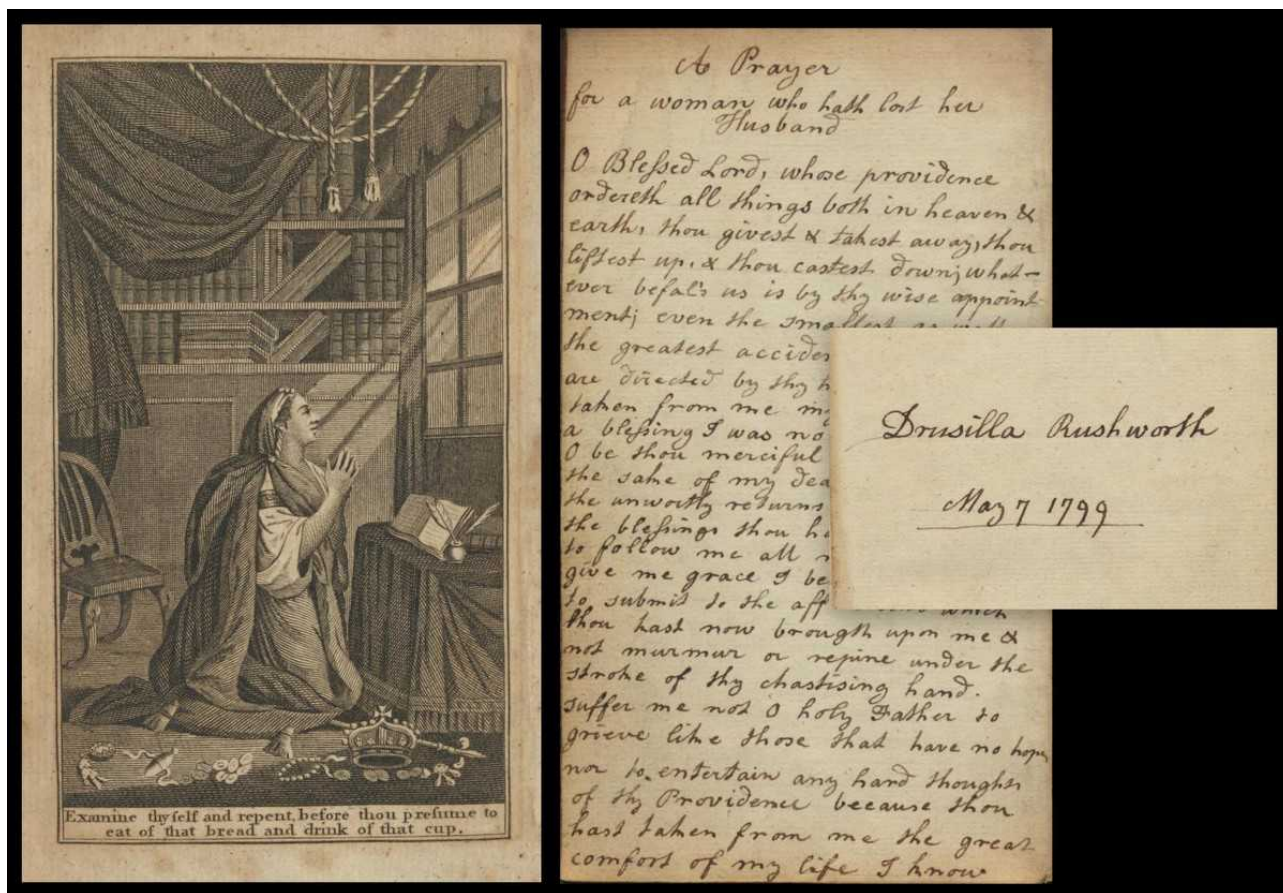 Examine thyself and repent, before thou presume to
eat of that bread and drink of that cup.
A Prayer
for a woman who hath lost her
Husband
O Blessed Lord, whose providence
ordereth all things both in heaven &
earth, thou givest & takest away, thou
liftest up, & thou castest down; what-
ever befal's us is by thy wise appoint
ment; even the smallest as well
the greatest
are directed by thy
taken from me
a blessing I was
O be thou merciful
the sake of my
the unworthy returns
the blessings thou
to follow me all
give me grace I
to submit to the which
thou hast now brougth upon me &
not murmur or repine under the
stroke of thy chastising hand.
suffer me not O holy Father to
grieve like those that have no hope,
nor to entertain any hard thoughts
of thy Providence because thou
hast taken from me the great
comfort of my life I know
Drusilla Rushworth
May 7 1799